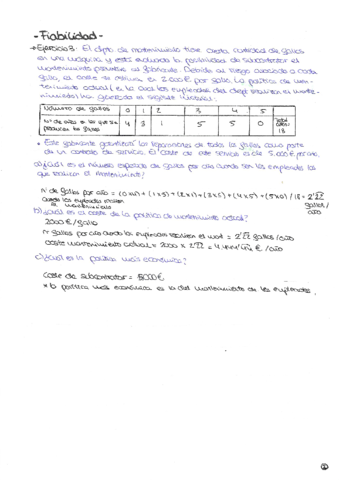 - Fiabilidad -
→ Ejercicio 3: El dpto de mantenimiento tiene cierta cantidad de fallos
en una máquina y está evaluando la posibilidad de subcontratar el
mantenimiento preventivo al fabricante. Debido al riesgo asociado a cada
fallo, el coste se estima en 2.000€ por fallo. La política de man-
tenimiento actual, en la cual los empleados del dept realizan el mante-
nimiento, ha generado el siguiente historial:
Número de fallos 0 1 2 3 4 5
Nº de años en los que se producen los fallos 4 3 1 5 5 0 Total años: 18
• Este fabricante garantizará las reparaciones de todos los fallos como parte
de un contrato de servicio. El coste de este servicio es de 5.000€ por año.
a) ¿Cuál es el número esperado de fallos por año cuando son los empleados los
que realizan el mantenimiento?
Nº de fallos por año = (0x4) + (1x3) + (2x1) + (3x5) + (4x5) + (5x0) / 18 = 2'22 fallos/año
cuando los empleados realizan
mantenimiento
b) ¿Cuál es el coste de la política de mantenimiento actual?
2000€/fallo
Nº fallos por año cuando los empleados realizan el mant = 2'22 fallos/año
coste mantenimiento actual = 2000 x 2'22 = 4.444'44 €/año
c) ¿Cuál es la política más económica?
Coste de subcontratar = 5000€
* la política más económica es la del mantenimiento de los empleados.